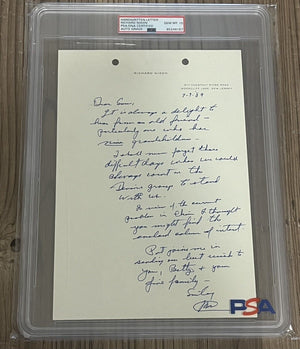 HANDWRITTEN LETTER
RICHARD NIXON
PSA/DNA CERTIFIED
AUTO GRADE
GEM MT 10
PSA
RICHARD NIXON
Dear
It is always a delight to
hear from an old friend -
particularly one who has
grandchildren -
I shall never forget those
difficult days when we could
always count on the
group to stand
with us.
In view of the current
in China I thought
you might find the
enclosed column of interest
Pat joins me in
sending our best to
you, Betty + your
fine family -
Sincerely
PSA